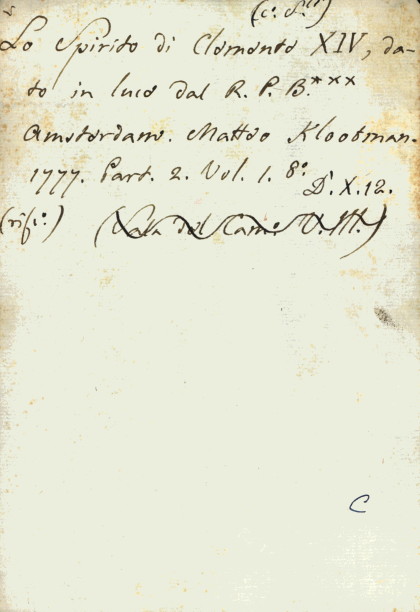 Lo Spirito di Clemente XIV, da-
to in luce dal R. P. B.***
Amsterdam. Matteo Klootman.
1777. Part. 2. Vol. 1. 8°.
D'. X. 12.
(rifo.) (Sala del Cam.
C